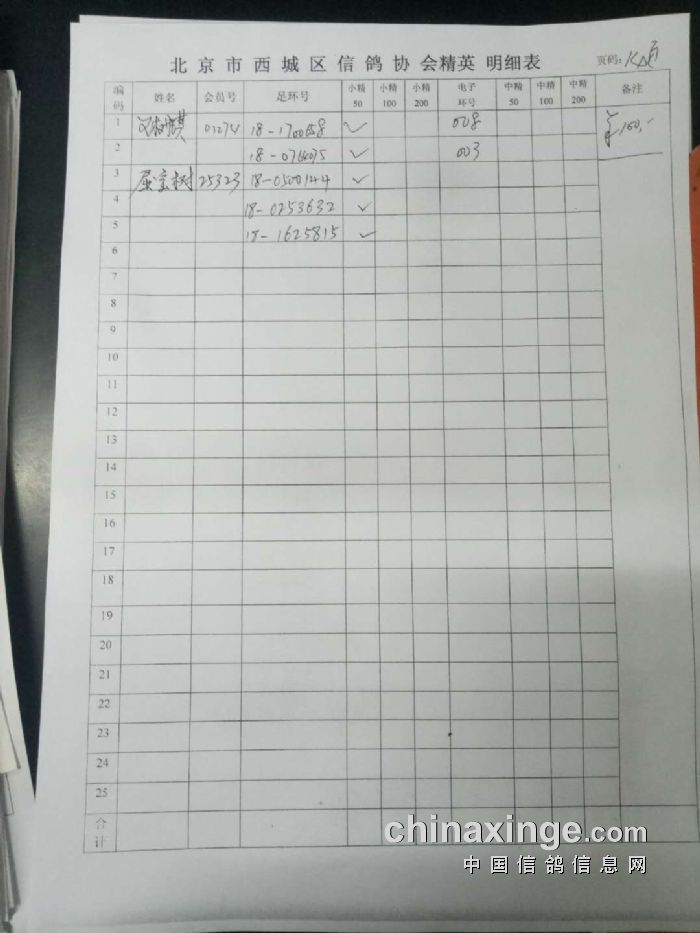 北京市西城区信鸽协会精英 明细表
页码:
编码 姓名 会员号 足环号 小精50 小精100 小精200 电子环号 中精50 中精100 中精200 备注
1 01274 ✓ 008 ¥100.-
2 ✓ 003
3 屈宝树 25323 18-0500144 ✓
4 18-0253632 ✓
5 18-1625815 ✓
6
7
8
9
10
11
12
13
14
15
16
17
18
19
20
21
22
23
24
25
合计
chinaxinge.com
中国信鸽信息网